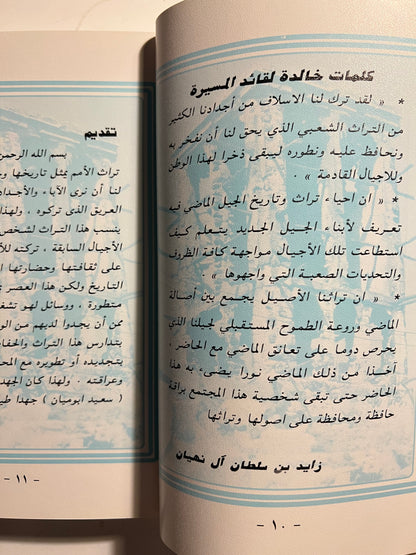 كلمات خالدة لقائد المسيرة
* « لقد ترك لنا الاسلاف من أجدادنا الكثير
من التراث الشعبي الذي يحق لنا أن نفخر به
ونحافظ عليه ونطوره ليبقى ذخرا لهذا الوطن
وللاجيال القادمة » .
* « ان احياء تراث وتاريخ الجيل الماضي فيه
تعريف لأبناء الجيل الجديد يتعلم كيف
استطاعت تلك الأجيال مواجهة كافة الظروف
والتحديات الصعبة التي واجهوها » .
* « ان تراثنا الأصيل يجمع بين أصالة
الماضي وروعة الطموح المستقبلي لجيلنا الذي
يحرص دوما على تعانق الماضي مع الحاضر .
آخذا من ذلك الماضي نورا يضىء به هذا
الحاضر حتى تبقى شخصية هذا المجتمع براقة
حافظة ومحافظة على اصولها وتراثها
زايد بن سلطان آل نهيان
- ١٠ -
تقديم
بسم الله الرحمن
تراث الأمم يمثل تاريخها و
لنا أن نرى الآباء والأجداد
العريق الذى تركوه ، ولهذا
ينسب هذا التراث لشخص
الأجيال السابقة ، تركته للأ
على ثقافتها وحضارتها
التاريخ ولكن هذا العصر
متطورة ، ووسائل لهو تشغ
ممن أن يجدوا لديهم من الو
بتدارس هذا التراث والحفا
بتجديده أو تطويره مع المحا
وعراقته . ولهذا كان الجهد
( سعيد ابوميان ) جهدا طي
- ١١ -